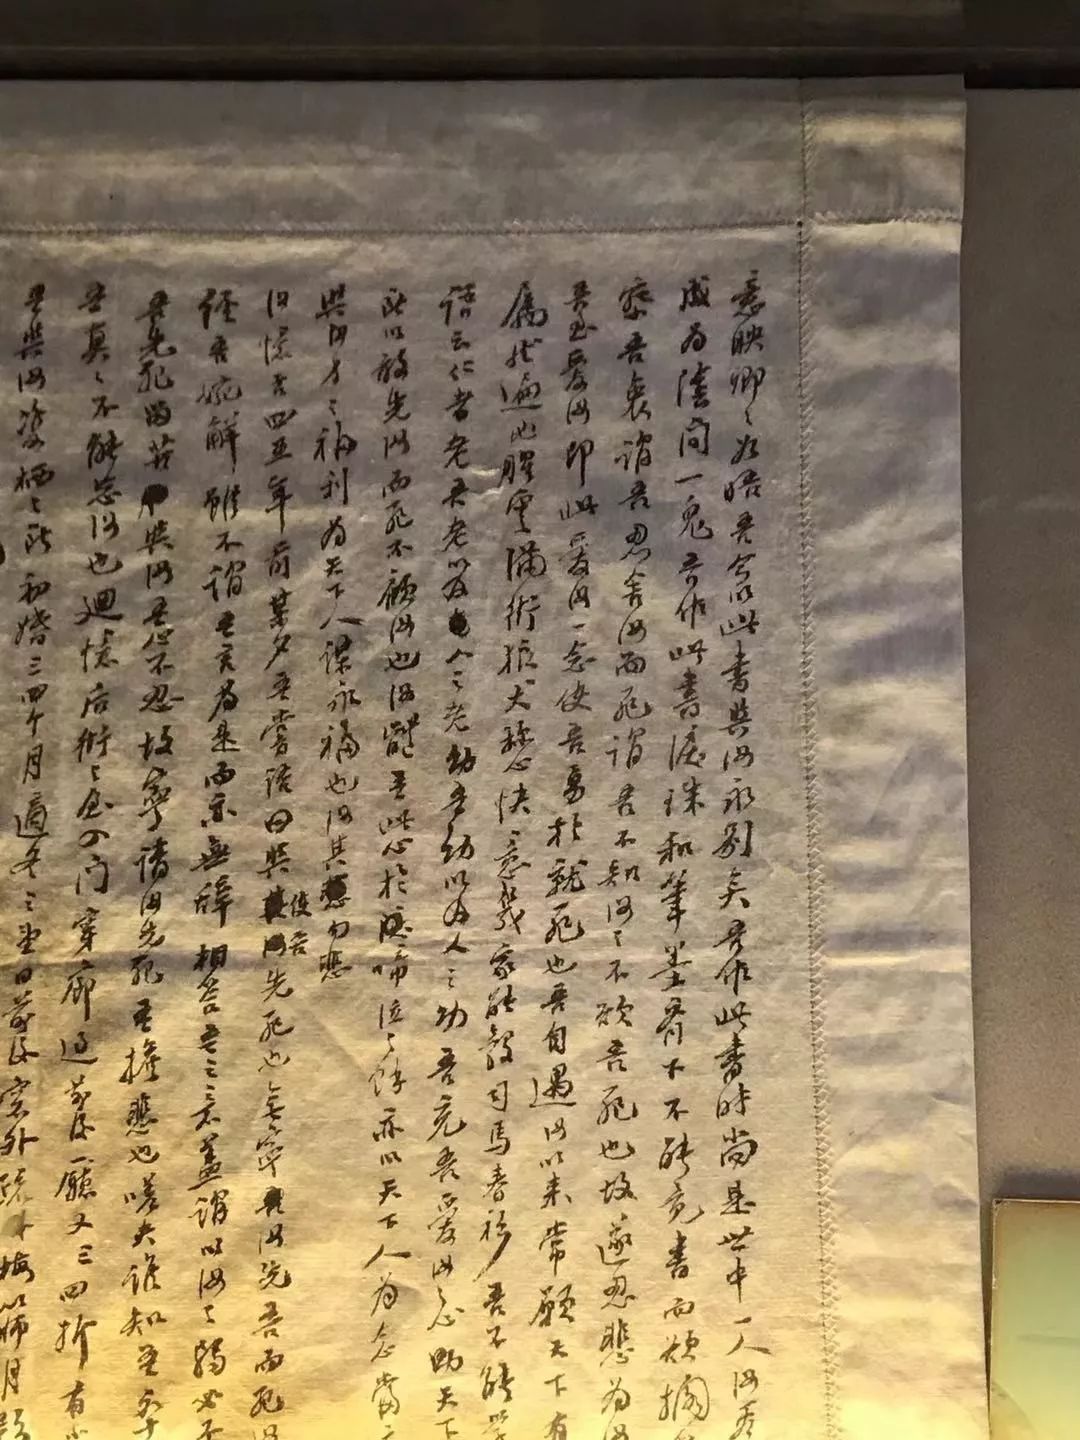 意映卿卿如晤吾今以此書與汝永別矣吾作此書時尚是世中一人汝看
成为陰间一鬼吾作此書淚珠和筆墨齊下不能竟書而欲擱
察吾衷謂吾忍舍汝而死謂吾不知汝之不欲吾死也故遂忍悲为汝
吾至爱汝即此爱汝一念使吾勇於就死也吾自遇汝以来常願天下有
屬然遍地腥雲滿街狼犬稱心快意幾家能彀司馬春衫吾不能學
語云仁者老吾老以及人之老幼吾幼以及人之幼吾充吾爱汝之心助天下
所以敢先汝而死不顧汝也汝體吾此心於啼泣之餘亦以天下人为念當
與汝身之福利为天下人謀永福也汝其勿悲
汝憶否四五年前某夕吾嘗語曰與使吾先死也無寧汝先吾而死
經吾婉解雖不謂吾言为是而亦無辭相答吾之意蓋謂以汝之弱必不
吾先死留苦與汝吾心不忍故寧請汝先死吾擔悲也嗟夫誰知吾卒
吾真真不能忘汝也迴憶后街之屋入门穿廊过前後廳又三四折有
吾與汝雙栖之所初婚三四个月適冬之望日前後窓外疏梅篩月影